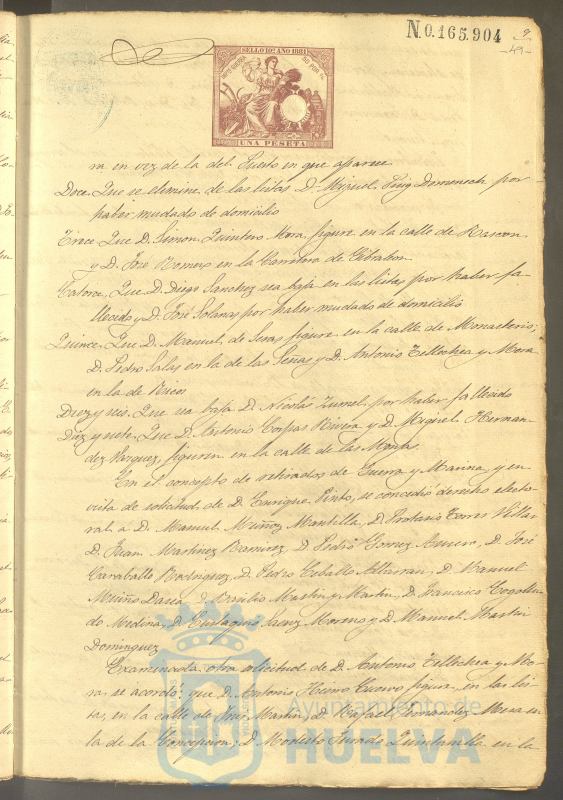 N.0.165.904
9
-49-
SELLO 10º AÑO 1881
UNA PESETA
ra en vez de la del Puerto en que aparece
Doce. Que se elimine de las listas D. Miguel Puig Domenech por
haber mudado de domicilio
Trece Que D. Simon Quintero Mora, figure en la calle de Rascon
y D. José Romero en la Carretera de Gibraleon
Catorce. Que D. Diego Sanchez sea baja en las listas por haber fa-
llecido y D. José Solano por haber mudado de domicilio
Quince. Que D. Manuel de Seras figure en la calle de Monasterio;
D. Pedro Salas en la de las Señas y D. Antonio Tellechea y Mora
en la de Ricos
Diez y seis. Que sea baja D. Nicolás Zumel por haber fallecido
Diez y siete. Que D. Antonio Corpas Rivera y D. Miguel Hernan-
dez Vazquez, figuren en la calle de las Monjas.
En el concepto de retirados de Guerra y Marina, y en
vista de solicitud de D. Enrique Pinto, se concedió derecho electo-
ral á D. Manuel Muñoz Mantilla, D. Protasio Torres Villar
D. Juan Martinez Ramirez D. Pedro Gomez, D. José
Caraballo Rodriguez, D. Pedro Ceballo Albarran, D. Manuel
D. Basilio Martin y Martin, D. Francisco Cogollu-
do Medina, D. Eustaquio Saenz Moreno y D. Manuel Martin
Dominguez
Examinada otra solicitud de D. Antonio Tellechea y Mo-
ra, se acordó: que D. Antonio Hierro Cuervo figure en las lis-
tas, en la calle de Martin; D. Rafael Fernandez Mesa en
la de la Concepcion; D. Modesto Jurado Quintanilla en la
Ayuntamiento de
HUELVA